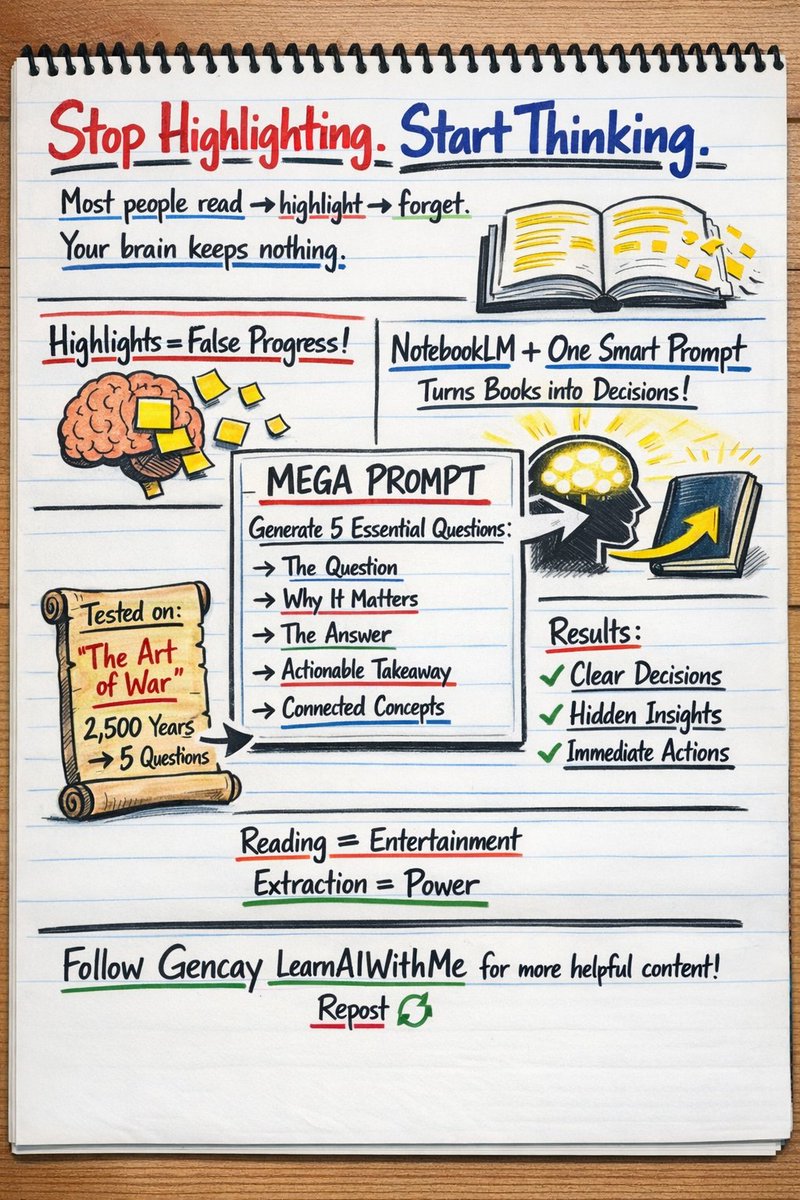 Stop Highlighting. Start Thinking.
Most people read → highlight → forget.
Your brain keeps nothing.
Highlights = False Progress!
NotebookLM + One Smart Prompt
Turns Books into Decisions!
MEGA PROMPT
Generate 5 Essential Questions:
→ The Question
→ Why It Matters
→ The Answer
→ Actionable Takeaway
→ Connected Concepts
Tested on:
"The Art
of War"
2,500 Years
→ 5 Questions
Results:
✓ Clear Decisions
✓ Hidden Insights
✓ Immediate Actions
Reading = Entertainment
Extraction = Power
Follow Gencay LearnAIWithMe for more helpful content!
Repost